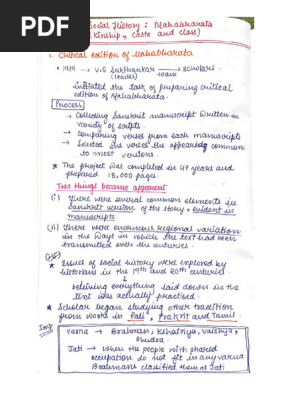 PDF
Social History : Mahabharata
(Kinship, caste and class)
1. Critical edition of Mahabharata
• 1919 → V.S Sukthankar → scholars.
(leader) team
initiated the task of preparing critical
edition of Mahabharata.
Process
→ Collecting Sanskrit manuscript written in
variety of scripts.
→ comparing verses from each manuscripts
→ Selected the verses the appeared common
to most versions.
* The project was completed in 47 years and
prepared 13,000 pages.
Two things became apparent
(i) There were several common elements in
Sanskrit version of the story → evident in
manuscripts.
(ii) There were enormous regional variation
in the ways in which the text had been
transmitted over the centuries.
* Issues of social history were explored by
historians in the 19th and 20th centuries.
↓
relieving everything laid down in the
text was actually practised.
* Scholar began studying other tradition
from works in Pali, Prakrit and Tamil.
Imp
Varna → Brahman, Kshatriya, Vaishya,
Shudra.
Jati → when the people with shared
occupation do not fit in any varna
Brahmans classified them as Jati